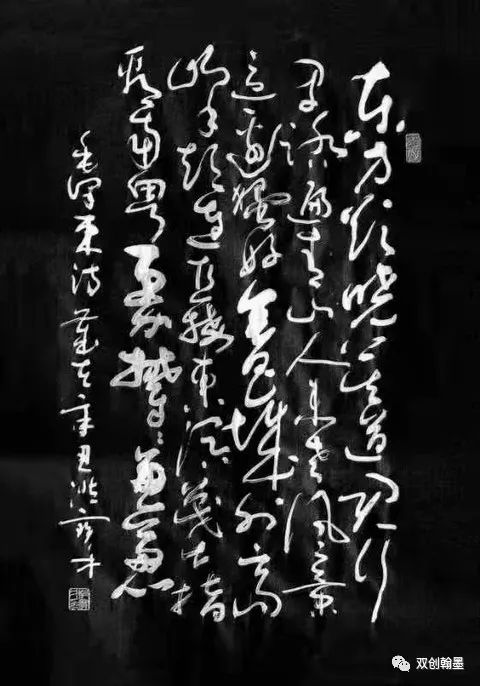 东方欲晓莫道君行
早踏遍青山人未老风景
这边独好会昌城外高
峰颠连直接东溟战士指
看南粤更加郁郁葱葱
毛泽东诗岁在辛丑
双创翰墨